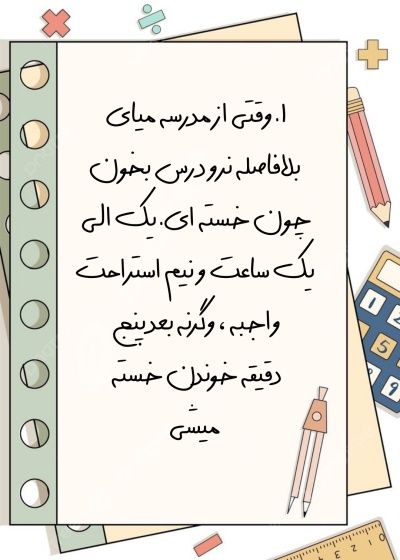 ۱. وقتی از مدرسه میای
بلافاصله نرو درس بخون
چون خسته ای. یک الی
یک ساعت و نیم استراحت
واجبه ، وگرنه بعد پنج
دقیقه خوندن خسته
میشی